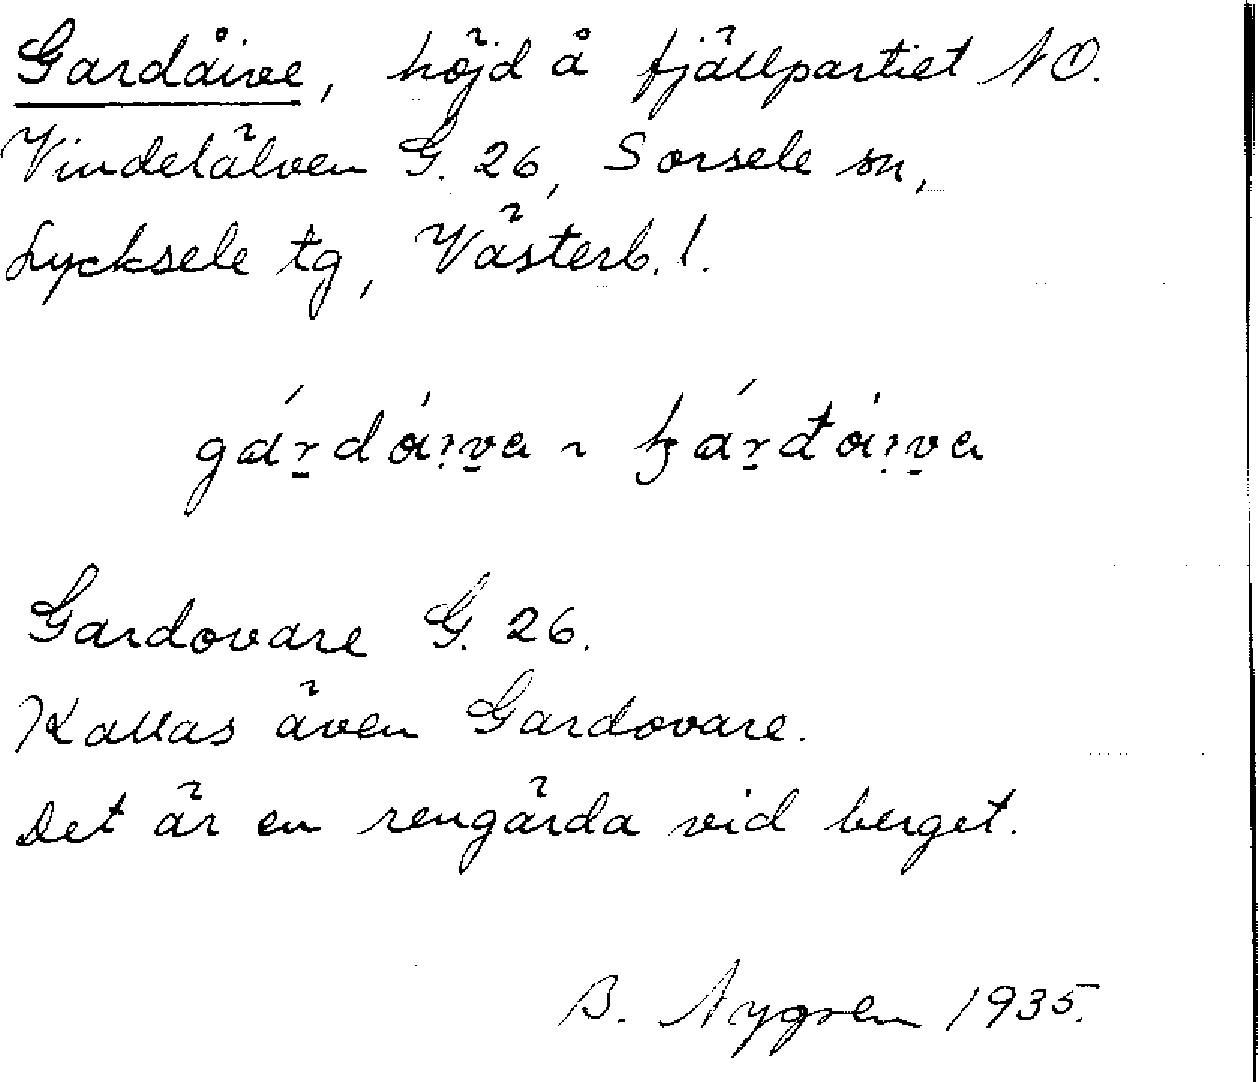 Gardåive, höjd å fjällpartiet NO.
Vindelälven G. 26, Sorsele sn,
Lycksele tg, Västerb. l.
gárdái̭va ~ ǥárđái̭va
Gardovare G. 26.
Kallas även Gardovare.
Det är en rengärda vid berget.
B. Nygren 1935.